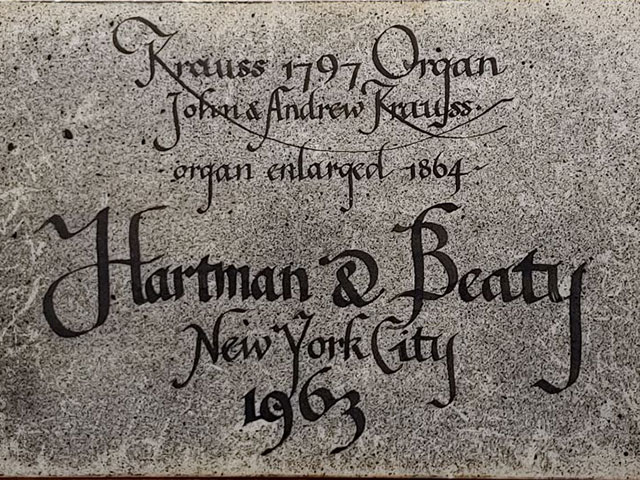 Krauss 1797 Organ
·John & Andrew Krauss·
·organ enlarged 1864·
Hartman & Beaty
New York City
1963